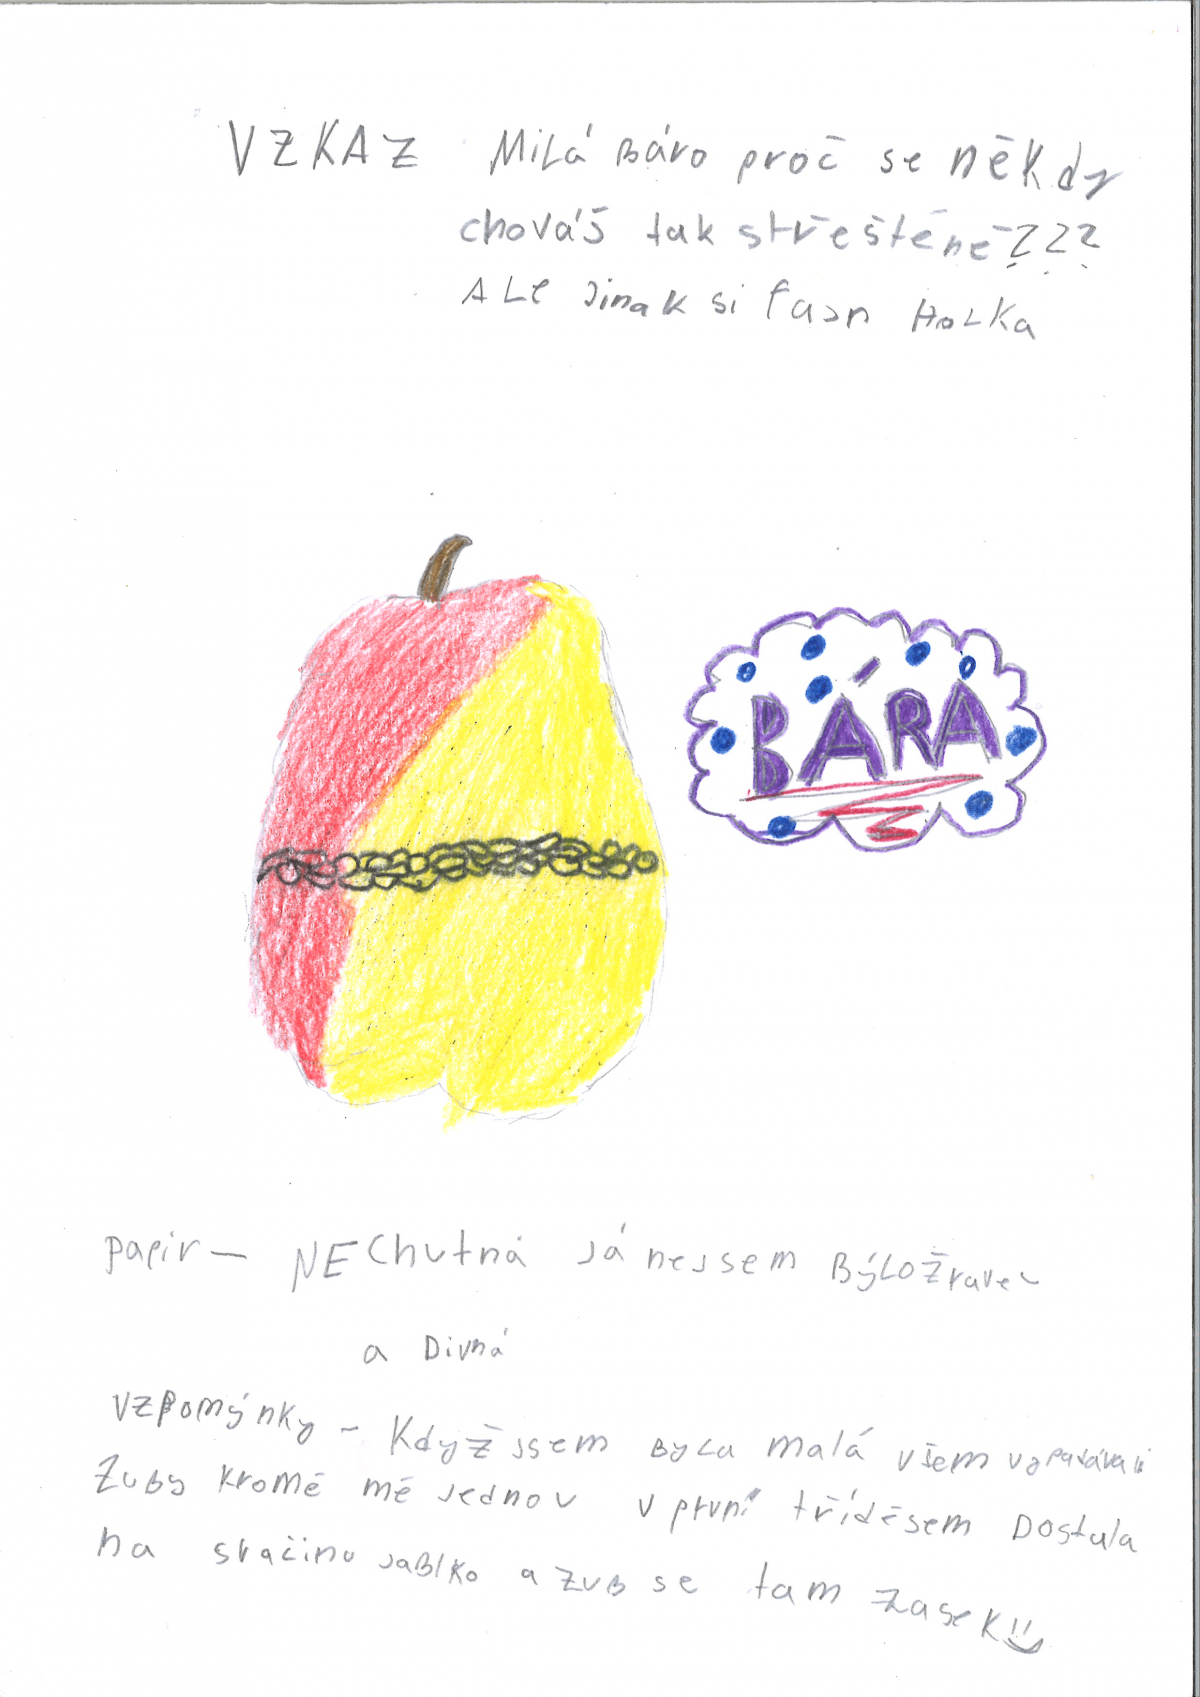 VZKAZ Milá Báro proč se někdy
chováš tak střeštěně???
ALE Jinak si fajn HoLKa
BÁRA
papír – NEChutná Já nejsem Býložravec
a Divná
vzpomýnky – Když jsem byla malá všem vypadávali
Zuby kromě mě jednou v první tříděsem Dostala
na svačinu jaBlko a ZuB se tam zasek